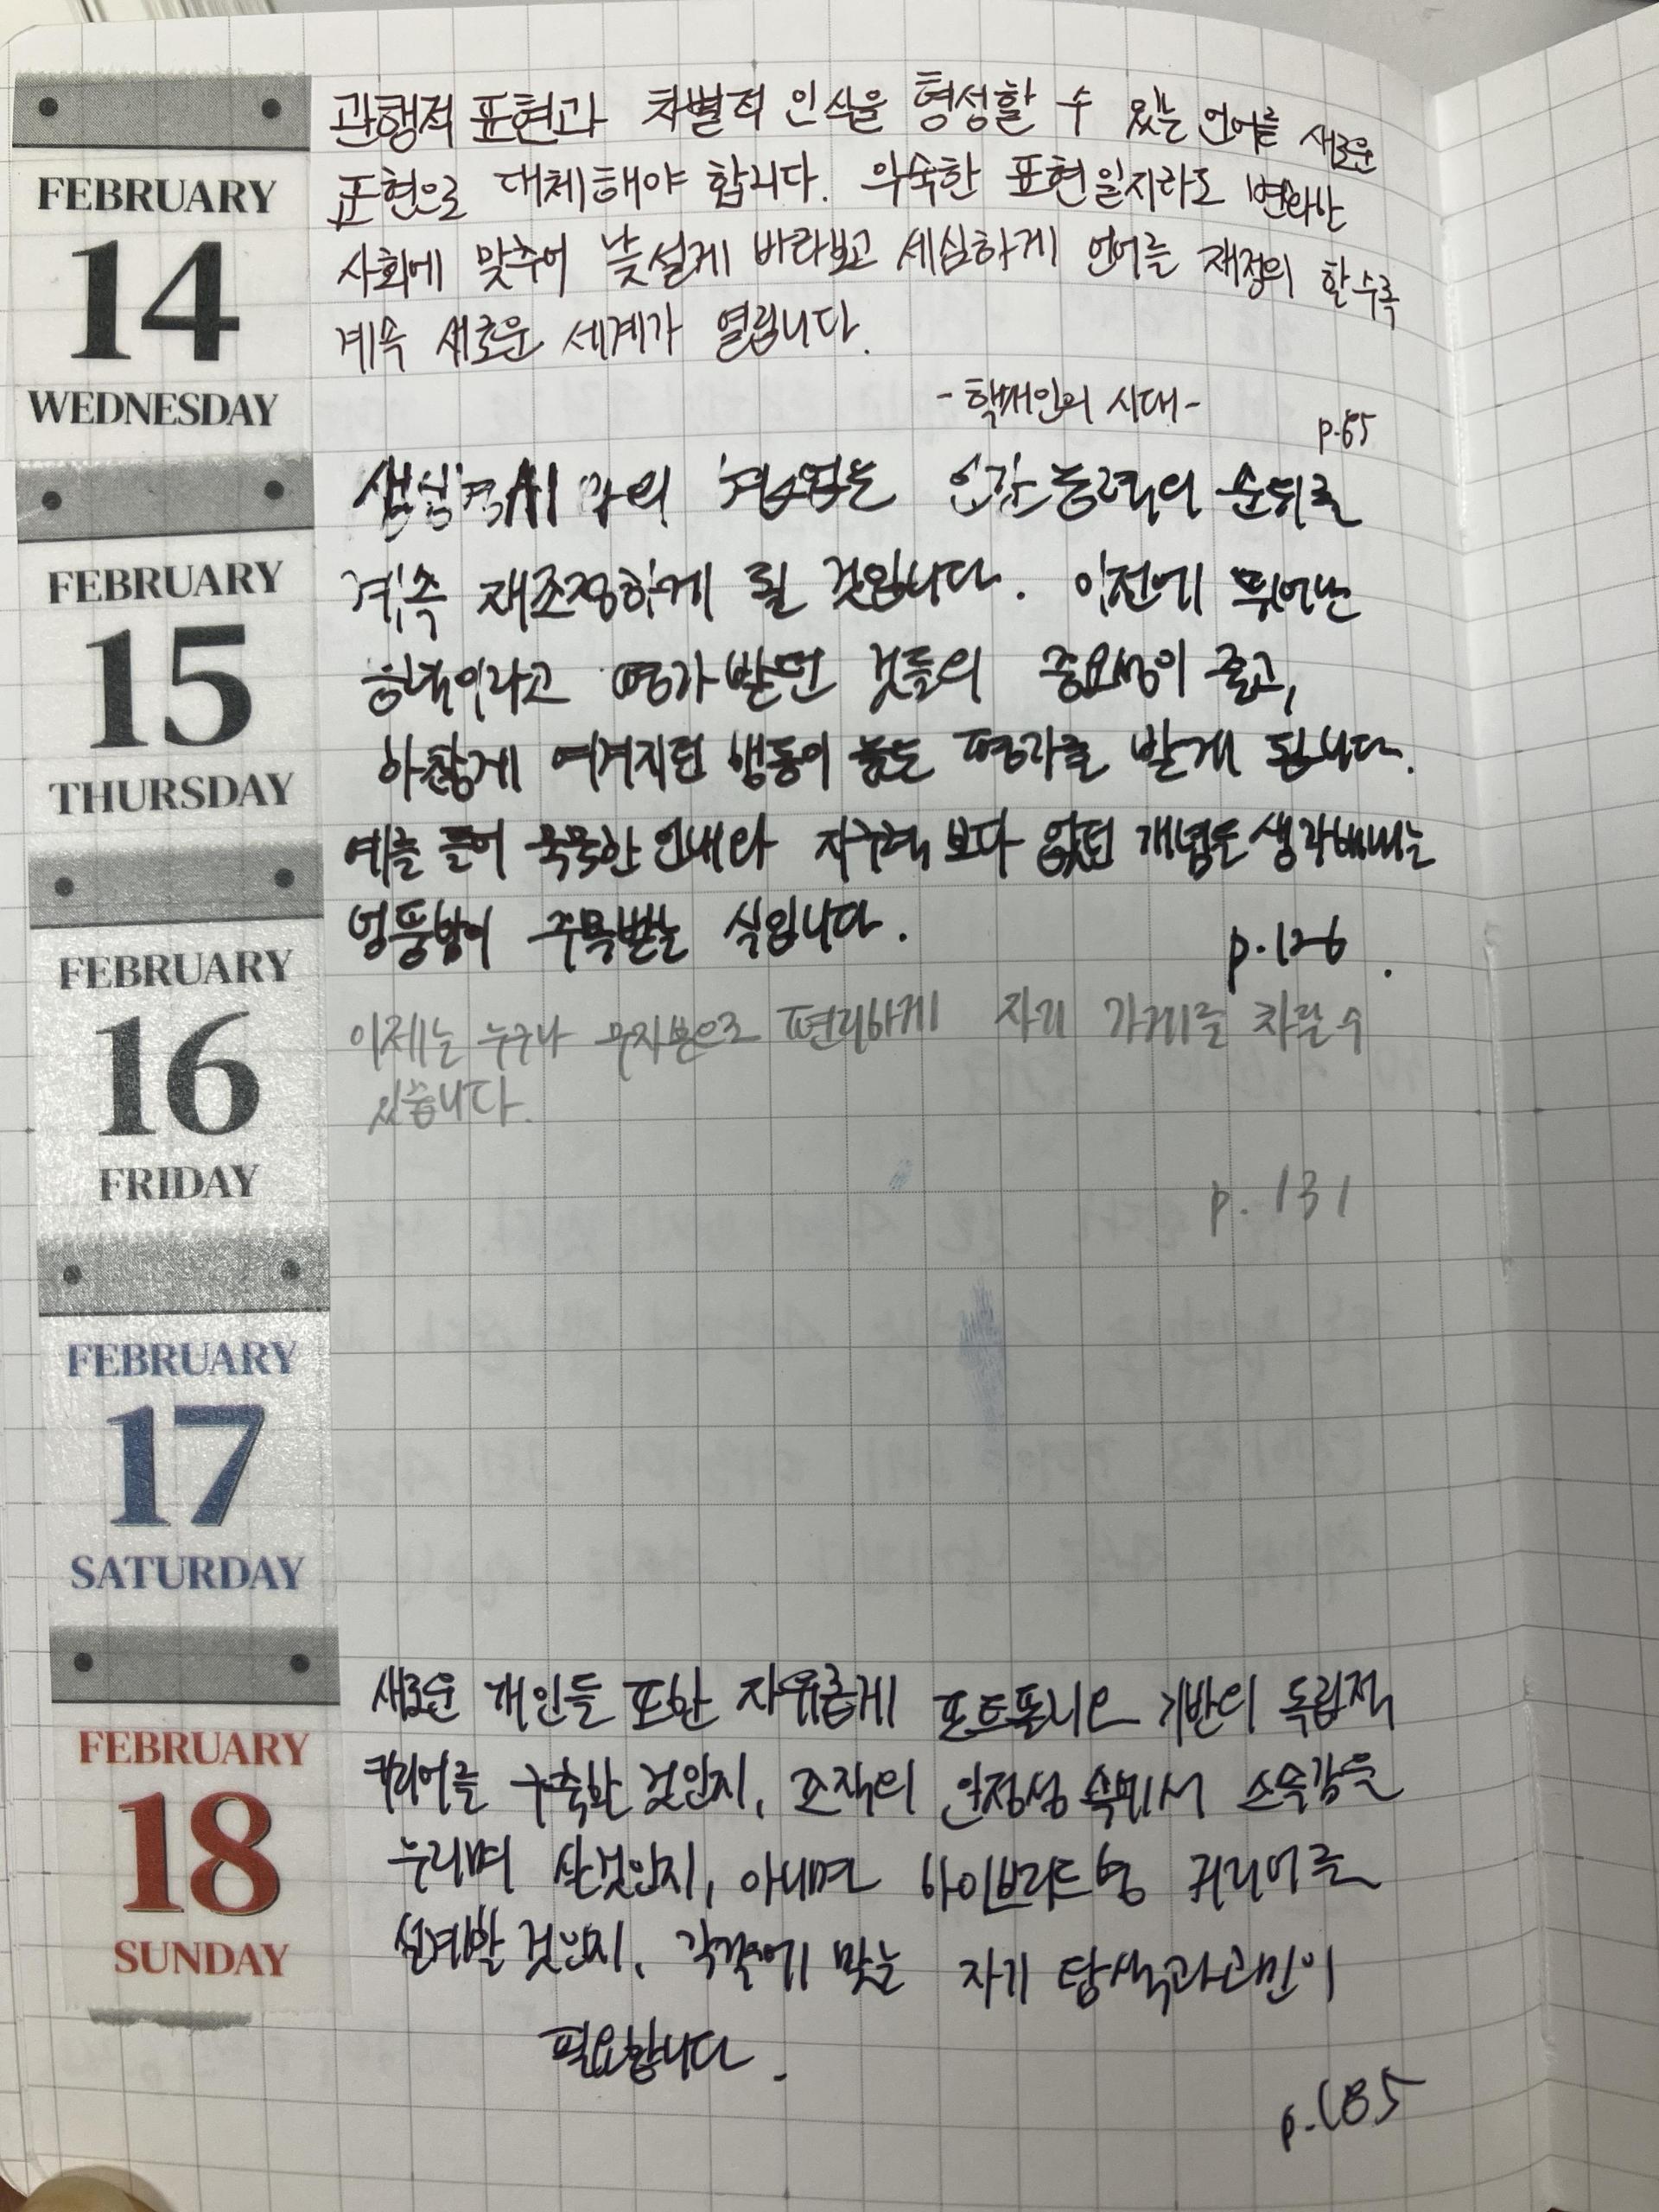 FEBRUARY
14
WEDNESDAY
관행적 표현과 차별적 인식을 형성할 수 있는 언어를 새로운
표현으로 대체해야 합니다. 익숙한 표현일지라도 변화한
사회에 맞추어 낯설게 바라보고 세심하게 언어를 재정의 할수록
계속 새로운 세계가 열립니다.
-핵개인의 시대-
p.65
FEBRUARY
15
THURSDAY
AI 과의 협업은 인간 능력의 순위를
계속 재조정하게 될 것입니다. 이전에 뛰어난
능력이라고 평가받던 것들의 중요성이 줄고,
하찮게 여겨지던 행동이 높은 평가를 받게 됩니다.
예를 들어 묵묵한 인내와 지구력 보다 없던 개념을 생각해내는
엉뚱함이 주목받는 식입니다.
p.126.
FEBRUARY
16
FRIDAY
이제는 누구나 무자본으로 편리하게 자기 가게를 차릴 수
있습니다.
p.131
FEBRUARY
17
SATURDAY
FEBRUARY
18
SUNDAY
새로운 개인들 또한 자유롭게 포트폴리오 기반의 독립적
커리어를 구축할 것인지, 조직의 안정성 속에서 소속감을
누리며 살것인지, 아니면 하이브리드형 커리어를
설계할 것인지, 각각에 맞는 자기 탐색과 고민이
필요합니다.
p.185